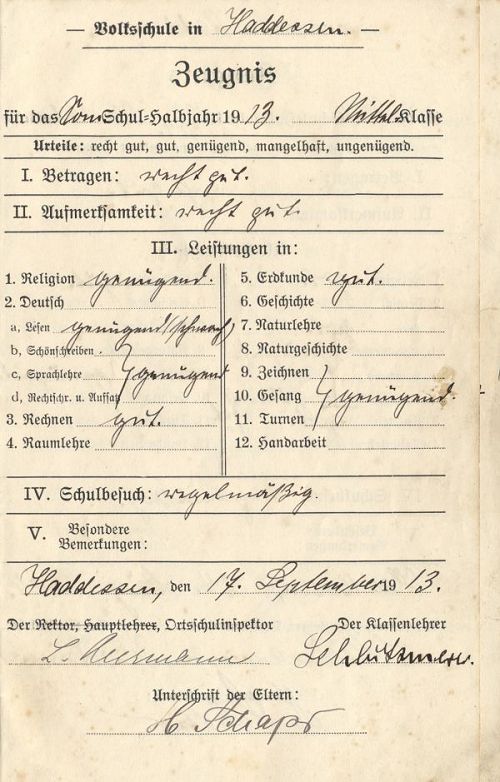 — Volksschule in Haddessen. —
Zeugnis
für das Som Schul-Halbjahr 1913. Mittel-Klasse
Urteile: recht gut, gut, genügend, mangelhaft, ungenügend.
I. Betragen: recht gut.
II. Aufmerksamkeit: recht gut.
III. Leistungen in:
1. Religion genügend.
2. Deutsch
a, Lesen genügend (schwach)
b, Schönschreiben
c, Sprachlehre genügend
d, Rechtschr. u. Aufsatz
3. Rechnen gut.
4. Raumlehre
5. Erdkunde gut.
6. Geschichte
7. Naturlehre
8. Naturgeschichte
9. Zeichnen
10. Gesang genügend.
11. Turnen
12. Handarbeit
IV. Schulbesuch: regelmäßig.
V. Besondere
Bemerkungen:
Haddessen, den 17. September 1913.
Der Rektor, Hauptlehrer, Ortschulinspektor Der Klassenlehrer
Unterschrift der Eltern:
H Schaps